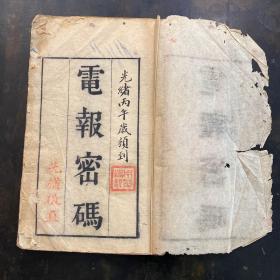 光緒丙午歲領到
電報密碼